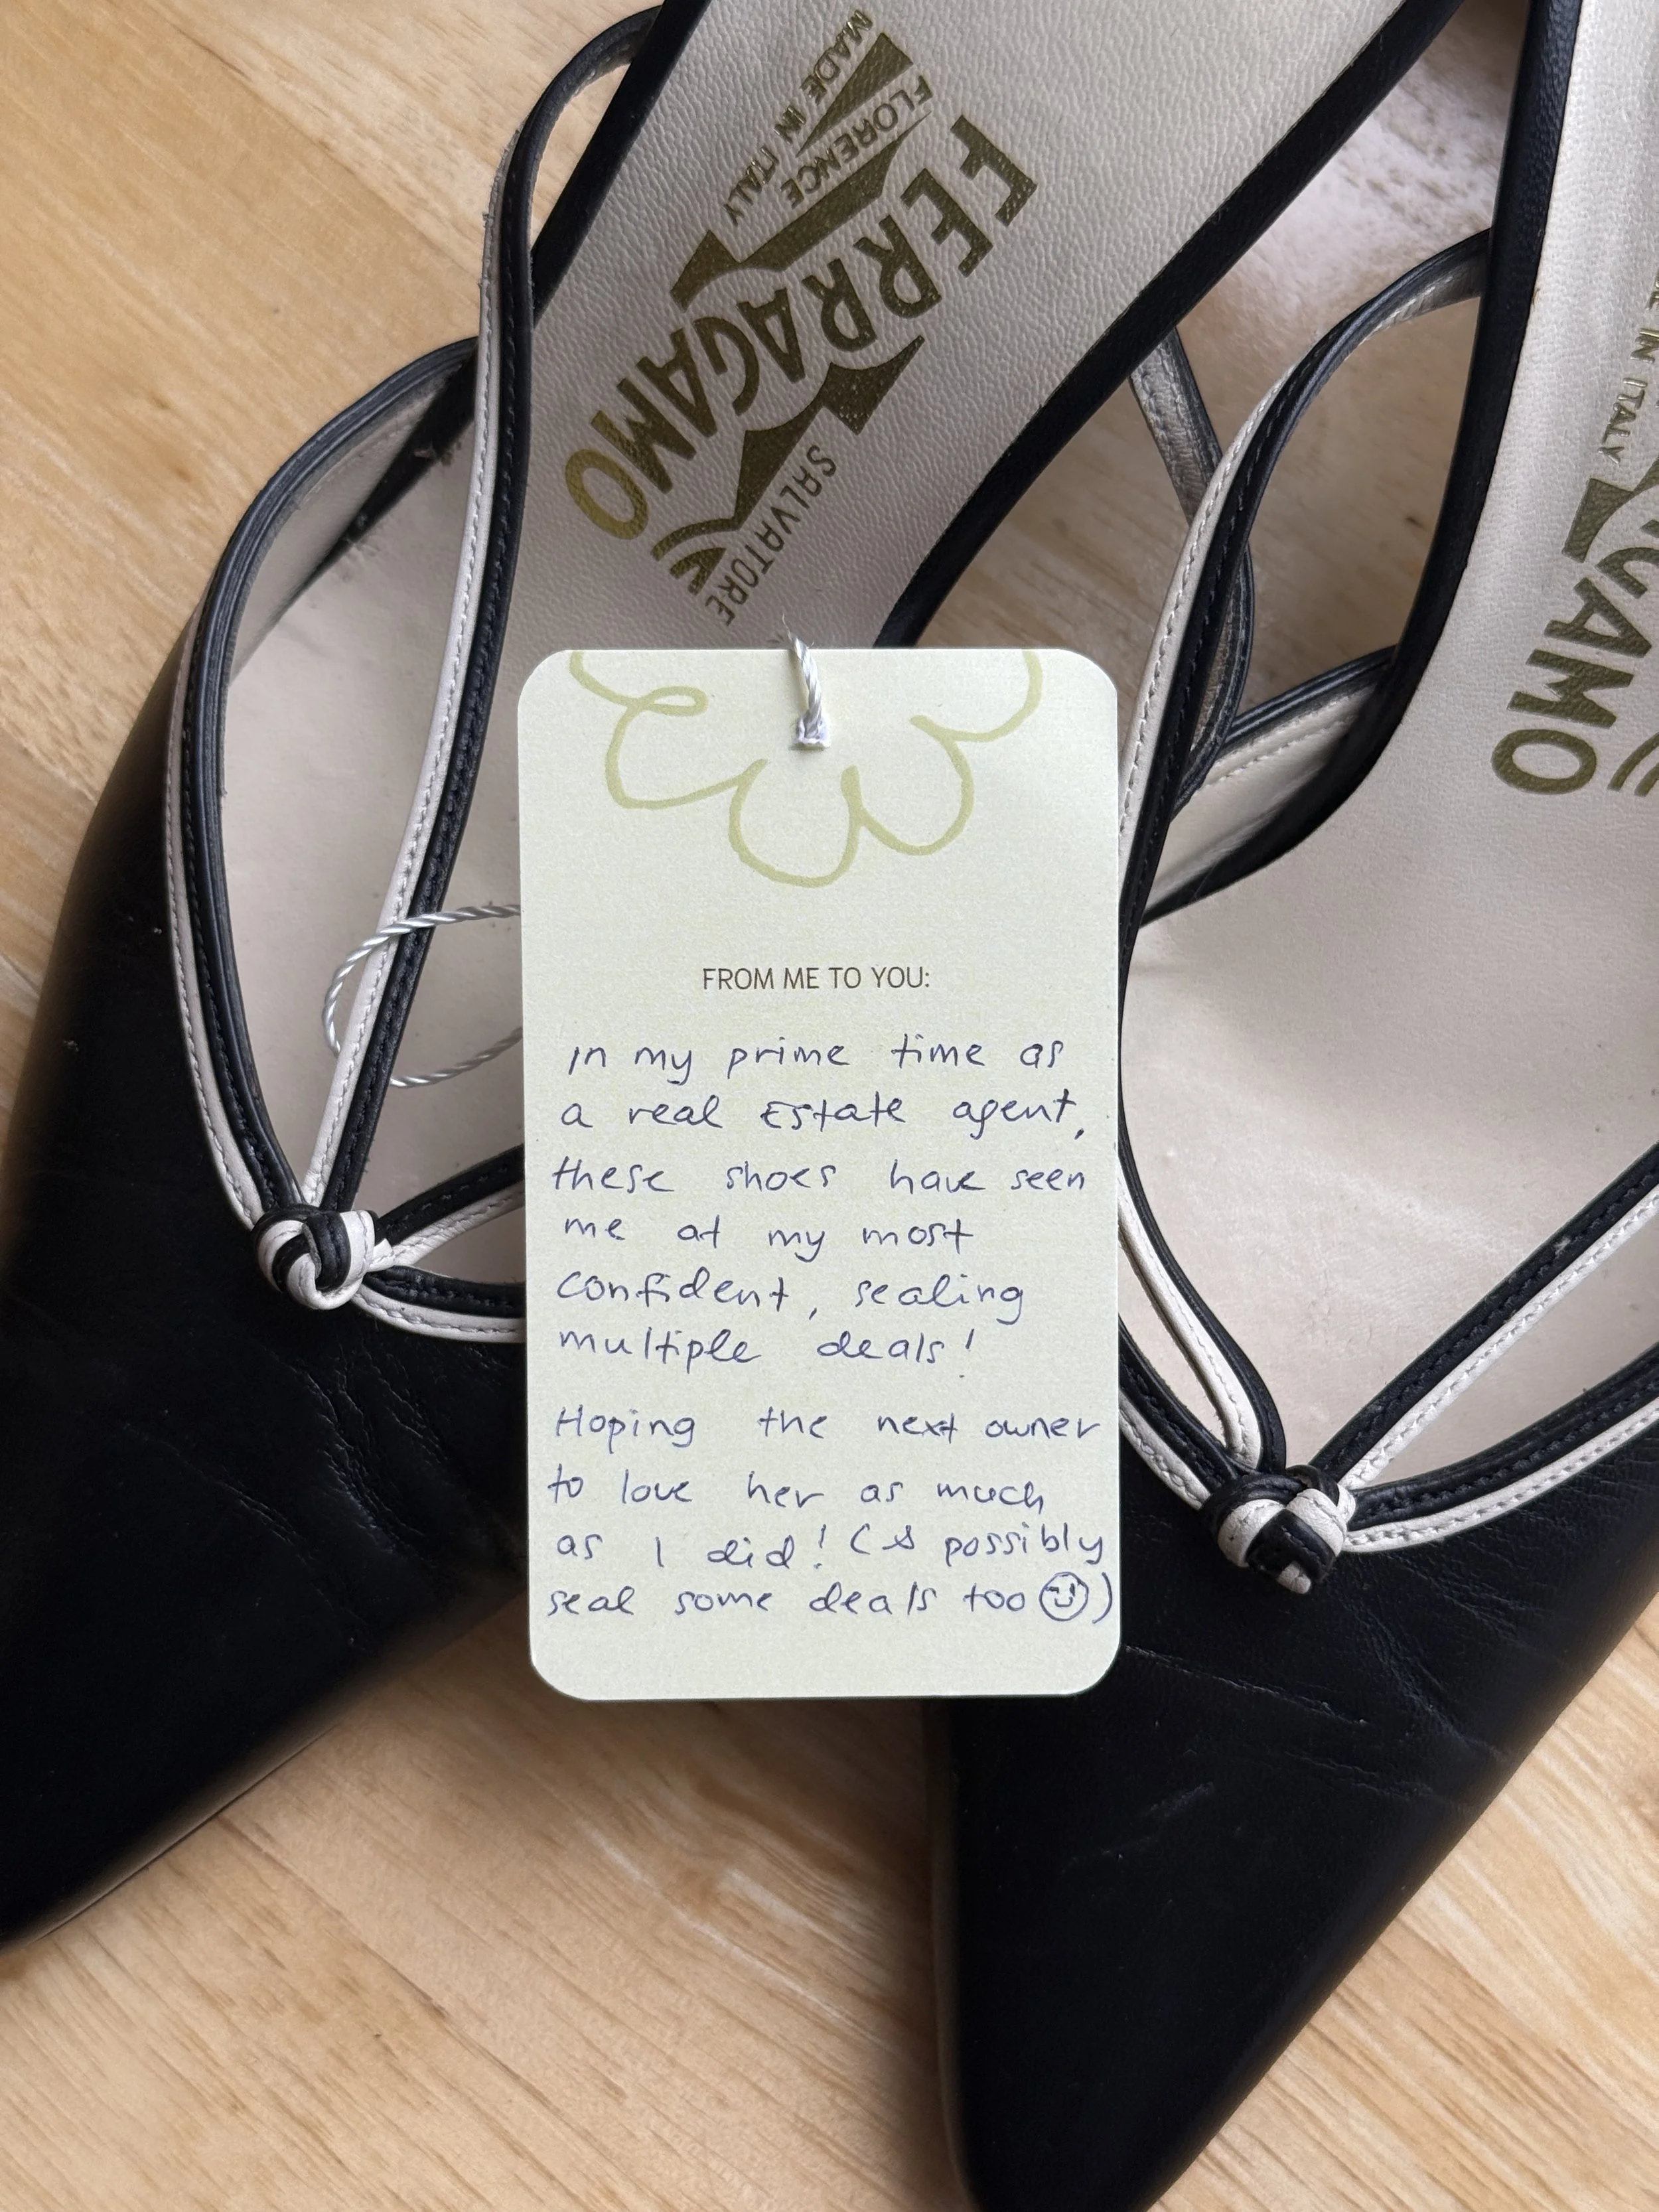 SALVATORE
FERRAGAMO
FLORENCE
MADE IN ITALY
IN ITALY
GAMO
FROM ME TO YOU:
In my prime time as
a real Estate agent,
these shoes have seen
me at my most
confident, sealing
multiple deals!
Hoping the next owner
to love her as much
as I did! (& possibly
seal some deals too)